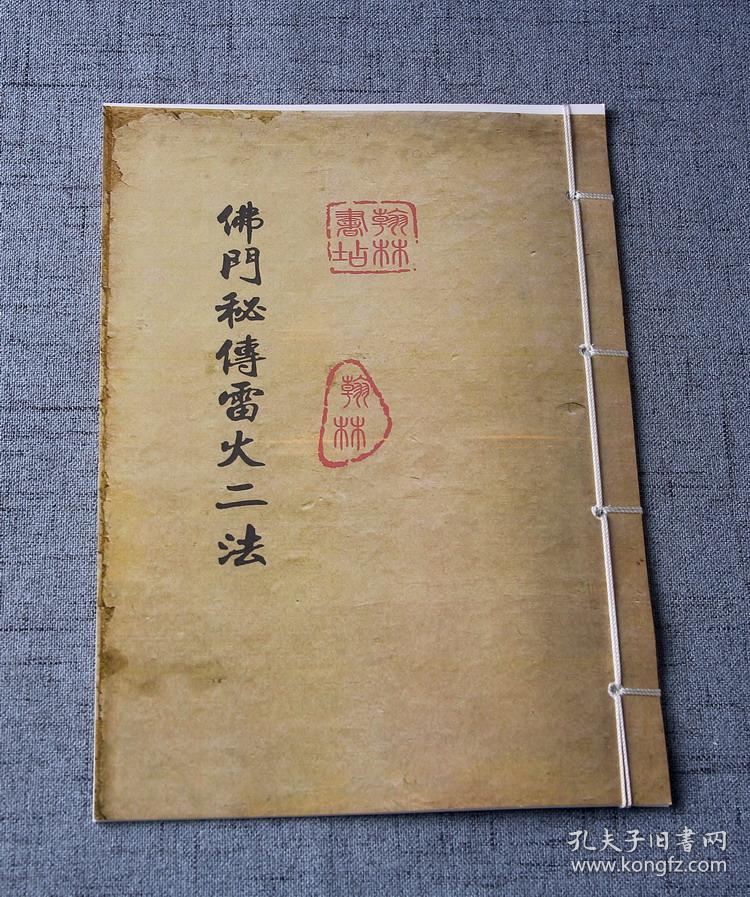 佛門秘傳雷火二法
翰林
書站
翰林
孔夫子旧書网
www.kongfz.com